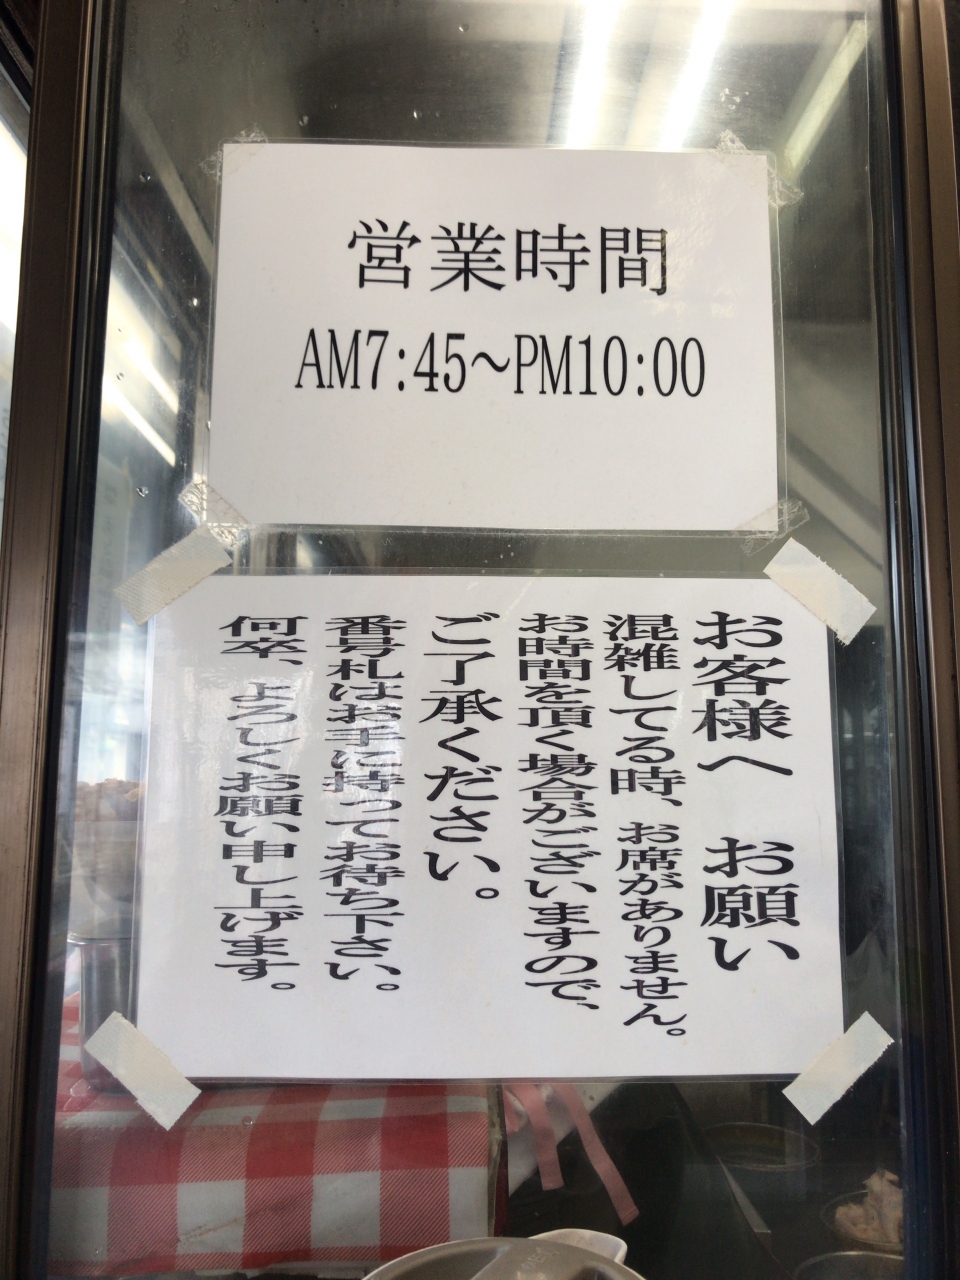 営業時間
AM7:45～PM10:00
お客様へ　お願い
混雑してる時、お席がありません。
お時間を頂く場合がございますので、
ご了承ください。
番号札はお手に持ってお待ち下さい。
何卒、よろしくお願い申し上げます。